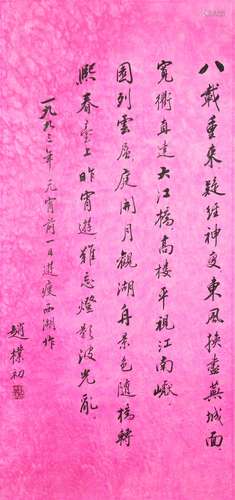 八載重來疑經神變東風換盡蕪城面
寬衢直達大江橋高樓平視江南巘
園列雲屏庭開月觀湖舟景色隨橋轉
熙春臺上昨宵遊難忘燈影波光亂
一九九三年元宵前一日遊瘦西湖作
趙樸初